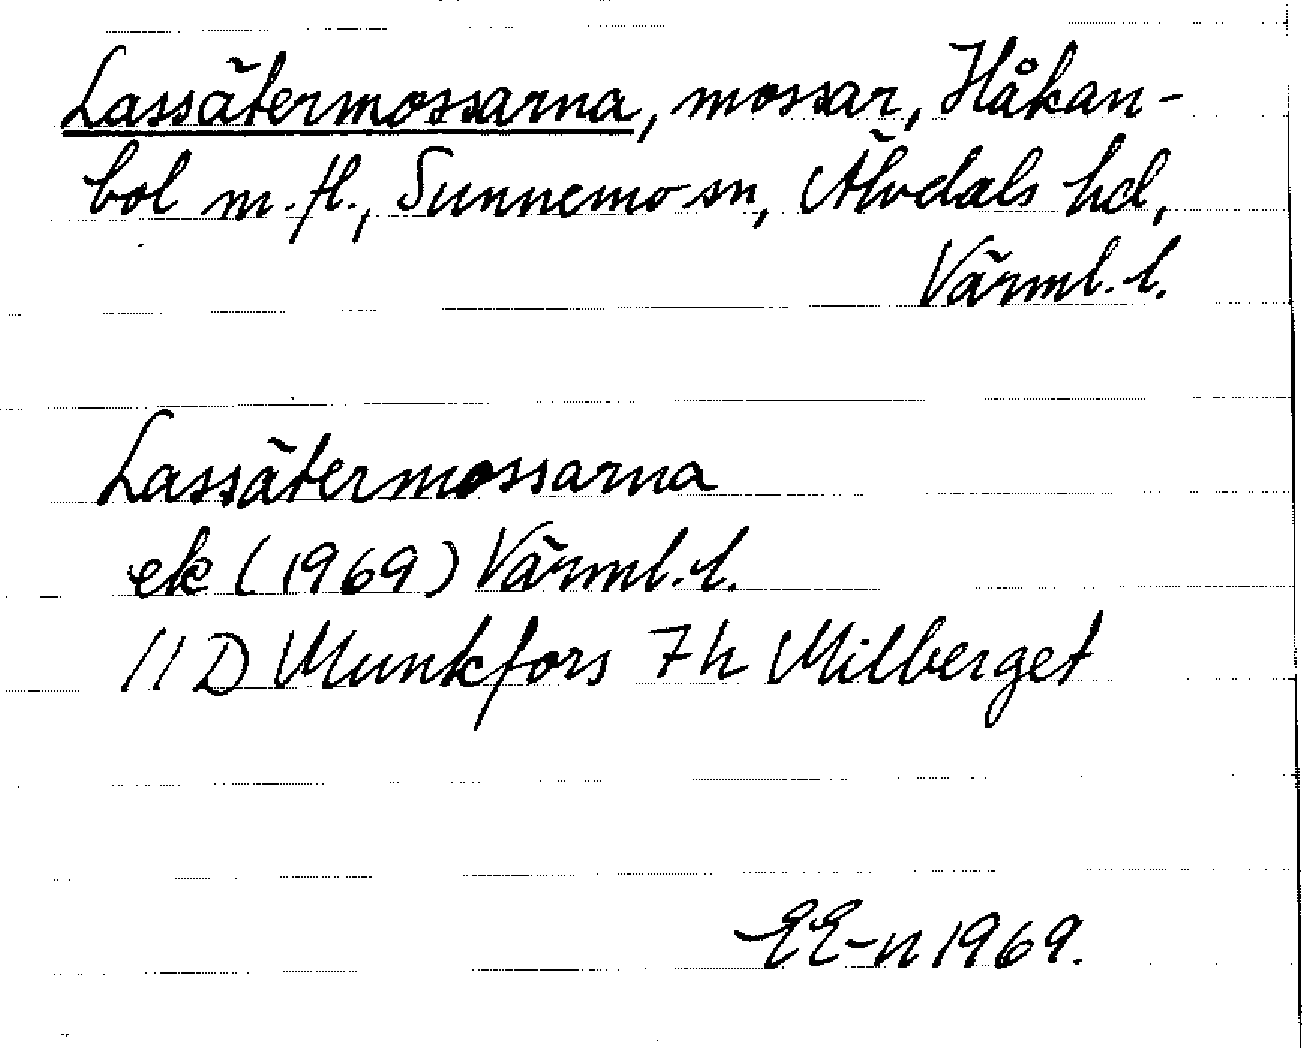 Lassätermossarna, mossar, Håkan-
bol m.fl., Sunnemo sn, Älvdals hd,
Värml. l.
Lassätermossarna
ek (1969) Värml. l.
11 D Munkfors 7 h Milberget
EE-n 1969.